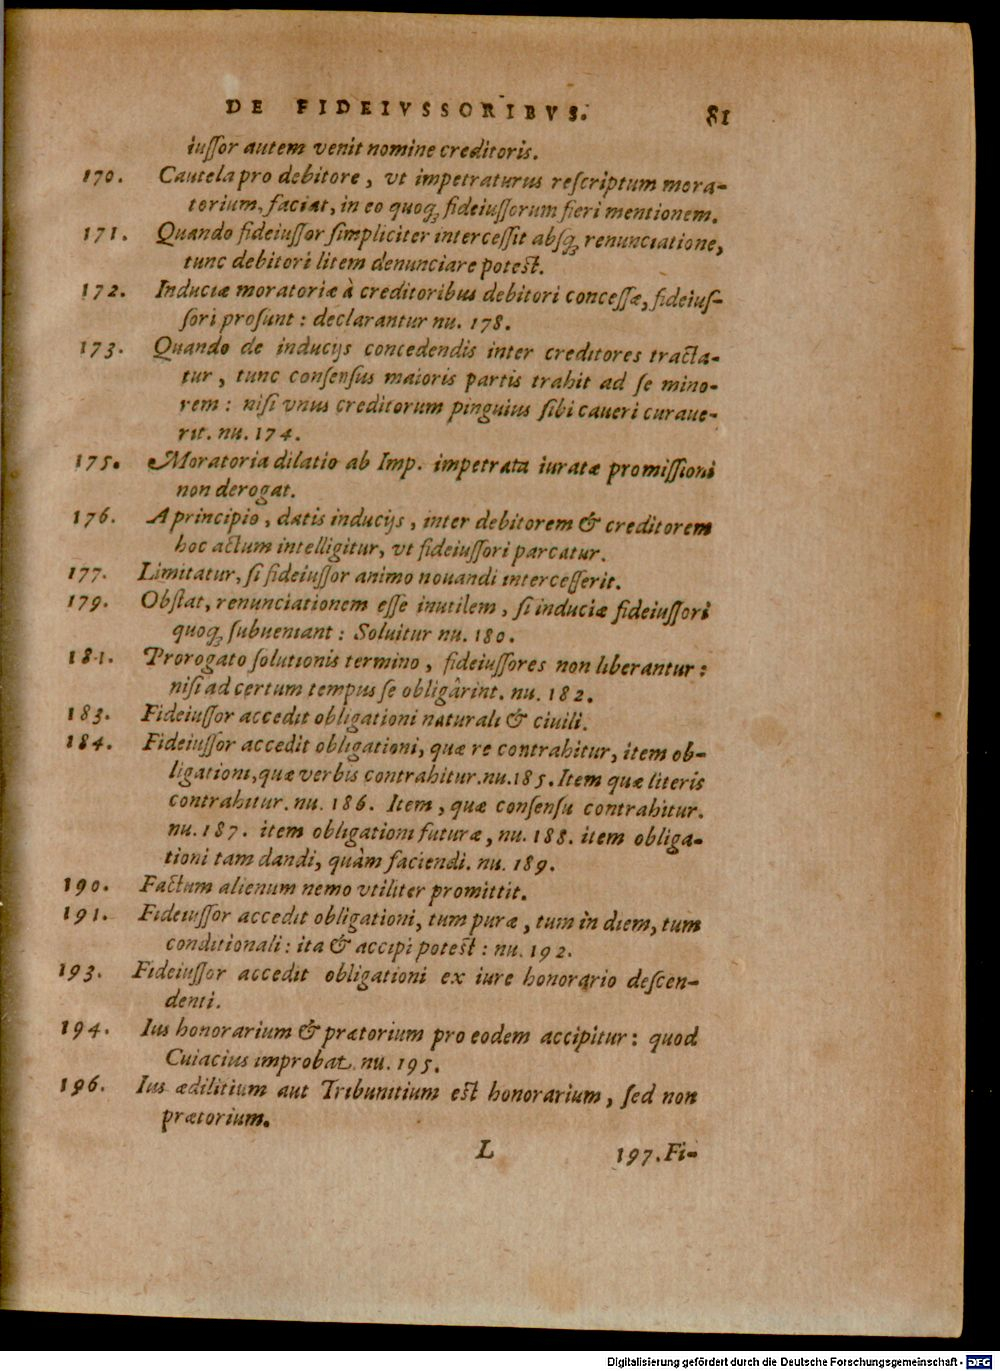 DE FIDEIVSSORIBVS. 81
iuſſor autem venit nomine creditoris.
170. Cautela pro debitore, vt impetraturus reſcriptum mora-
torium, faciat, in eo quoq́; fideiuſſorum fieri mentionem.
171. Quando fideiuſſor ſimpliciter interceſſit abſq́; renunciatione,
tunc debitori litem denunciare potest.
172. Induciæ moratoriæ à creditoribus debitori conceſſæ, fideiuſ-
ſori proſunt: declarantur nu. 178.
173. Quando de inducijs concedendis inter creditores tracta-
tur, tunc conſenſus maioris partis trahit ad ſe mino-
rem: niſi vnus creditorum pinguius ſibi caueri curaue-
rit. nu. 174.
175. Moratoria dilatio ab Imp. impetrata iuratæ promiſſioni
non derogat.
176. A principio, datis inducijs, inter debitorem & creditorem
hoc actum intelligitur, vt fideiuſſori parcatur.
177. Limitatur, ſi fideiuſſor animo nouandi interceſſerit.
179. Obſtat, renunciationem eſſe inutilem, ſi induciæ fideiuſſori
quoq́; ſubueniant: Soluitur nu. 180.
181. Prorogato ſolutionis termino, fideiuſſores non liberantur:
niſi ad certum tempus ſe obligârint. nu. 182.
183. Fideiuſſor accedit obligationi naturali & ciuili.
184. Fideiuſſor accedit obligationi, quæ re contrahitur, item ob-
ligationi, quæ verbis contrahitur. nu. 185. Item quæ literis
contrahitur. nu. 186. Item, quæ conſenſu contrahitur.
nu. 187. item obligationi futuræ, nu. 188. item obliga-
tioni tam dandi, quàm faciendi. nu. 189.
190. Factum alienum nemo vtiliter promittit.
191. Fideiuſſor accedit obligationi, tum puræ, tum in diem, tum
conditionali: ita & accipi potest: nu. 192.
193. Fideiuſſor accedit obligationi ex iure honorario deſcen-
denti.
194. Ius honorarium & prætorium pro eodem accipitur: quod
Cuiacius improbat. nu. 195.
196. Ius ædilitium aut Tribunitium est honorarium, ſed non
prætorium.
L 197. Fi-
Digitalisierung gefördert durch die Deutsche Forschungsgemeinschaft - DFG